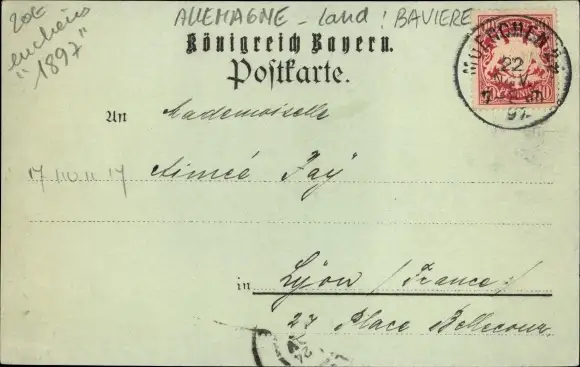 20€
enchères
"1897"
ALLEMAGNE - Land : BAVIERE
Königreich Bayern.
Postkarte.
MUENCHEN
22
97
10 PFENNIG 10
An Mademoiselle
Aimée Fay
in Lyon (France)
27 Place Bellecour.